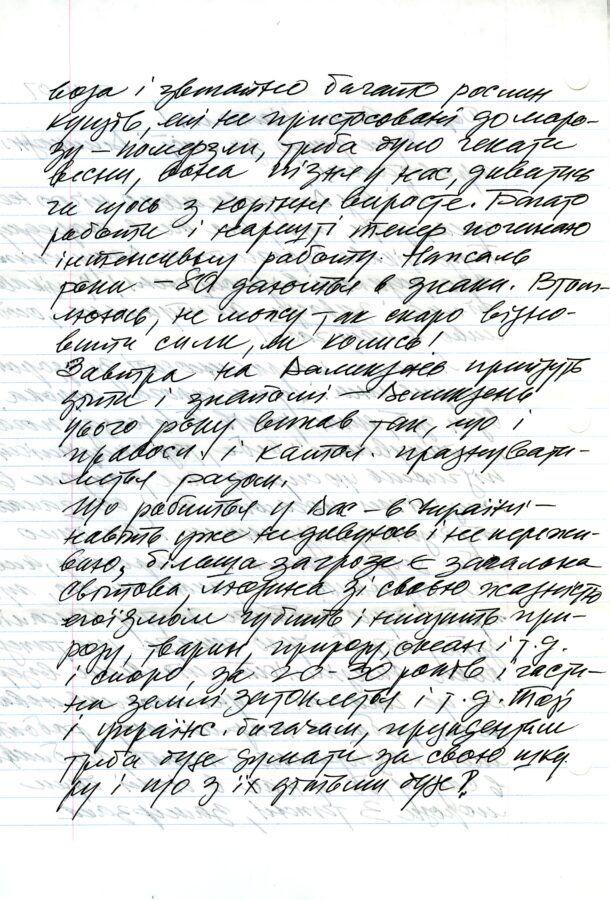 воза і звичайно багато рослин
кущів, які не пристосовані до моро-
зу – померзли, треба було чекати
весни, вона пізня у нас, дивитись
чи щось з коріння виросте. Багато
роботи і нарешті тепер починаю
інтенсивну работу. На жаль
роки – 80 даються в знаки. Втом-
лююсь, не можу так скоро відно-
вити сили, як колись!
Завтра на Великдень прийдуть
діти і знайомі – Великдень
цього року випав так, що і
правосл. і катол. празнувати-
меться разом.
Що робиться у Вас – в Україні –
навіть уже не дивуюсь і не пережи-
ваю, більша загроза є загальна
світова, людина зі своєю жадністю
егоїзмом губить і нищить при-
роду, тварин, природу, океан і т.д.
і скоро, за 20-30 років і части-
на землі затопиться і т.д. Тоді
і україн. багачам, президентам
треба буде думати за свою шку-
ру і що з їх дітьми буде?